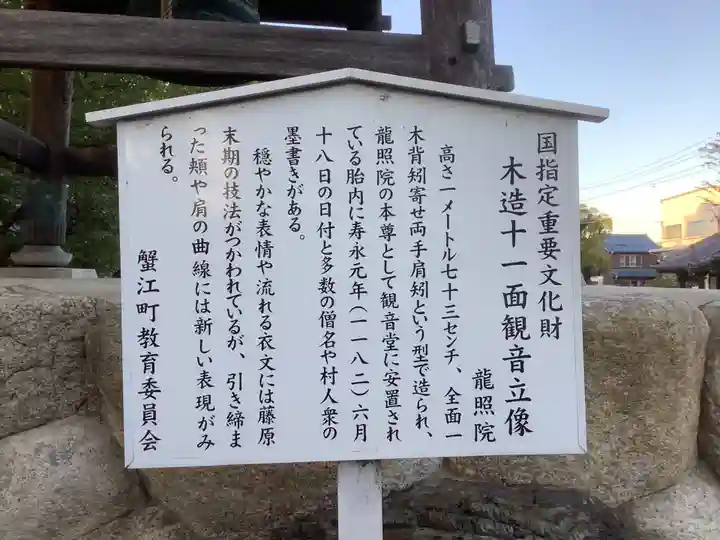 国指定重要文化財
木造十一面観音立像
龍照院
高さ一メートル七十三センチ、全面一
木背矧寄せ両手肩矧という型で造られ、
龍照院の本尊として観音堂に安置され
ている胎内に寿永元年(一一八二)六月
十八日の日付と多数の僧名や村人衆の
墨書きがある。
穏やかな表情や流れる衣文には藤原
末期の技法がつかわれているが、引き締ま
った頬や肩の曲線には新しい表現がみ
られる。
蟹江町教育委員会